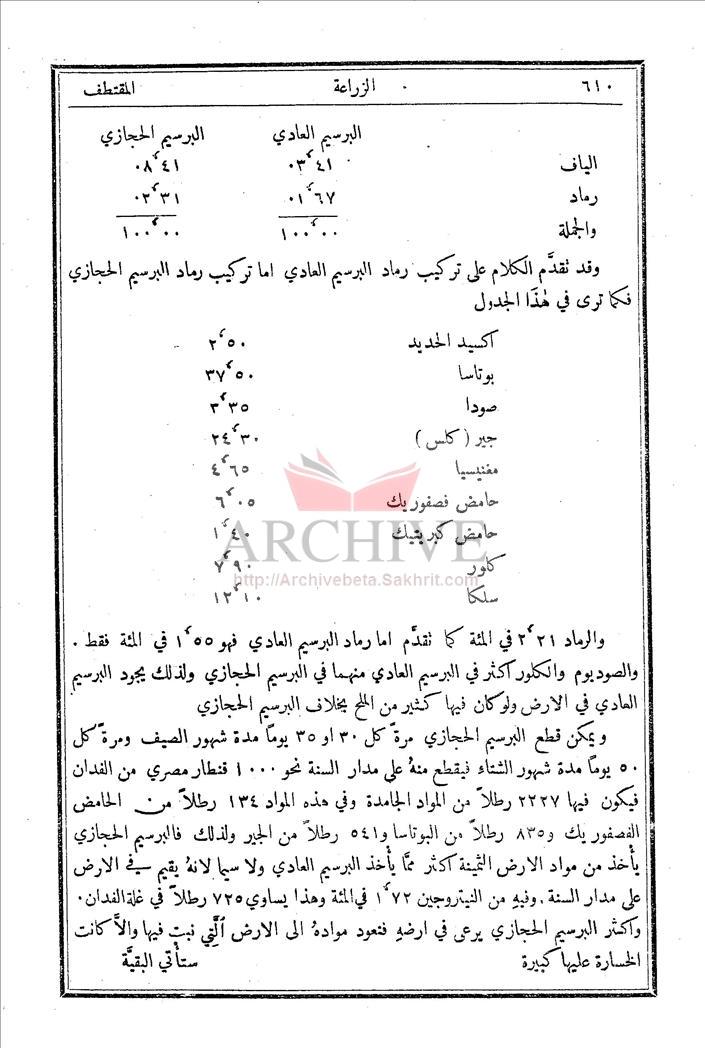 ٦١٠ الزراعة المقتطف
البرسيم العادي البرسيم الحجازي
الياف ٠٣٬٤١ ٠٨٬٤١
رماد ٠١٬٦٧ ٠٢٬٣١
والجملة ١٠٠٬٠٠ ١٠٠٬٠٠
وقد تقدَّم الكلام على تركيب رماد البرسيم العادي اما تركيب رماد البرسيم الحجازي
فكما ترى في هٰذَا الجدول
اكسيد الحديد ٢٬٥٠
بوتاسا ٣٧٬٥٠
صودا ٣٬٣٥
جير (كلس) ٢٤٬٣٠
مغنيسيا ٤٬٦٥
حامض فصفوريك ٦٬٠٥
حامض كبريتيك ١٬٤٠
كلور ٧٬٩٠
سلكا ١٢٬١٠
ARCHIVE
http://Archivebeta.Sakhrit.com
والرماد ٢٬٢١ في المئة كما تقدَّم اما رماد البرسيم العادي فهو ١٬٥٥ في المئة فقط .
والصوديوم والكلور اكثر في البرسيم العادي منهما في البرسيم الحجازي ولذلك يجود البرسيم
العادي في الارض ولو كان فيها كثير من الملح بخلاف البرسيم الحجازي
ويمكن قطع البرسيم الحجازي مرةً كل ٣٠ او ٣٥ يومًا مدة شهور الصيف ومرةً كل
٥٠ يومًا مدة شهور الشتاء فيقطع منهُ على مدار السنة نحو ١٠٠٠ قنطار مصري من الفدان
فيكون فيها ٢٢٢٧ رطلاً من المواد الجامدة وفي هذه المواد ١٣٤ رطلاً من الحامض
الفصفوريك و٨٣٥ رطلاً من البوتاسا و٥٤١ رطلاً من الجير ولذلك فالبرسيم الحجازي
يأخذ من مواد الارض الثمينة اكثر ممَّا يأخذ البرسيم العادي ولا سيما لانهُ يقيم في الارض
على مدار السنة . وفيهِ من النيتروجين ١٬٧٢ في المئة وهذا يساوي ٧٢٥ رطلاً في غلة الفدان .
واكثر البرسيم الحجازي يرعى في ارضهِ فتعود موادهُ الى الارض الَّتِي نبت فيها والاَّ كانت
الخسارة عليها كبيرة ستأتي البقيَّة